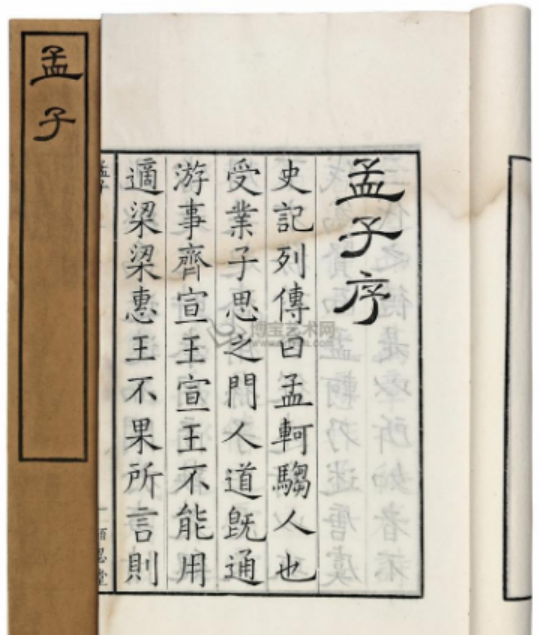 孟子
孟子序
史記列傳曰孟軻騶人也
受業子思之門人道既通
游事齊宣王宣王不能用
適梁梁惠王不果所言則
孟子
博宝艺术网